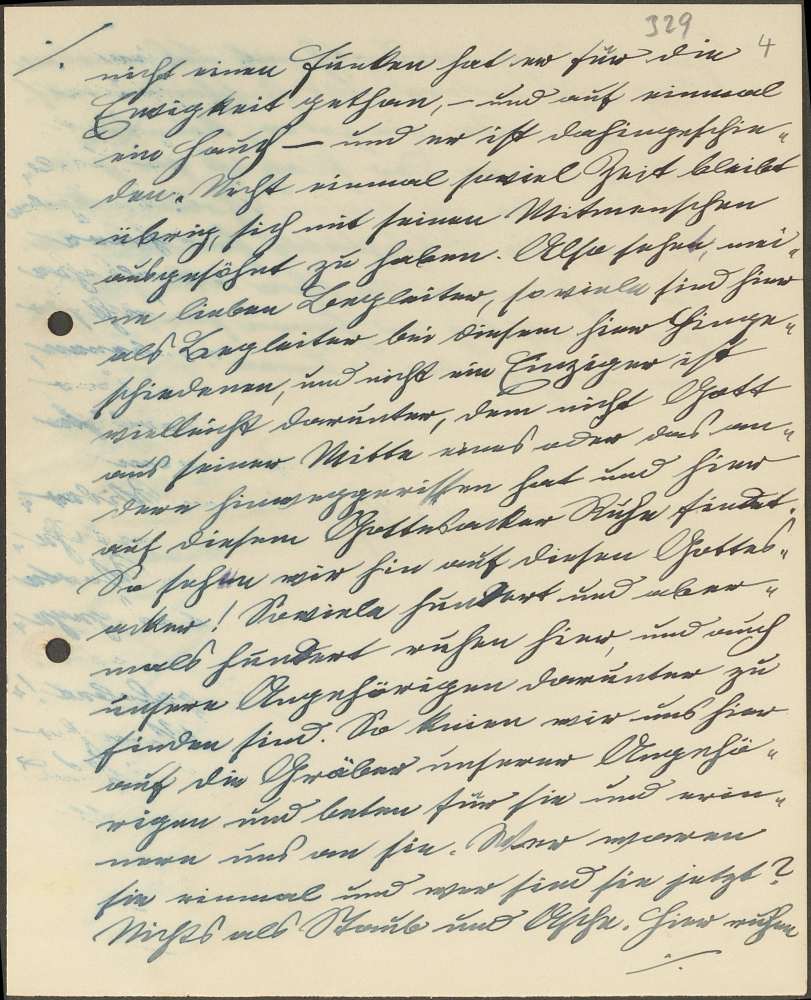 329
4
./.
nicht einen Funken hat er für die
Ewigkeit gethan, – und auf einmal
ein Hauch – und er ist dahingeschie-
den. Nicht einmal soviel Zeit bleibt
übrig, sich mit seinen Mitmenschen
ausgesöhnt zu haben. Also sehet, mei-
ne lieben Begleiter, soviele sind hier
als Begleiter bei diesem hier Hinge-
schiedenen, und nicht ein Einziger ist
vielleicht darunter, dem nicht Gott
aus seiner Mitte eines oder das an-
dere hinweggerissen hat und hier
auf diesem Gottesacker Ruhe findet.
So sehen wir hin auf diesen Gottes-
acker! Soviele hundert und aber-
mals hundert ruhen hier, und auch
unsere Angehörigen darunter zu
finden sind. So knien wir uns hier
auf die Gräber unserer Angehö-
rigen und beten für sie und erin-
nern uns an sie. Wer waren
sie einmal und wer sind sie jetzt?
Nichts als Staub und Asche. Hier ruhen
./.